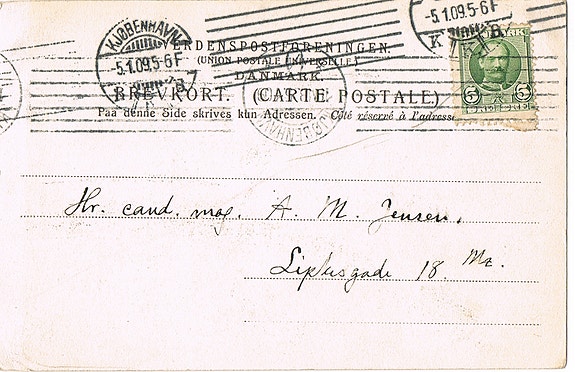 KJØBENHAVN
-5.1.09.5-6F
K.K.B.
-5.1.09.5-6F
K.K.B.
VERDENSPOSTFORENINGEN.
(UNION POSTALE UNIVERSELLE.)
DANMARK.
BREVKORT. (CARTE POSTALE.)
Paa denne Side skrives kun Adressen. Côté réservé à l'adresse
KJØBENHAVN
5 5
Hr. cand. mag. A. M. Jensen,
18